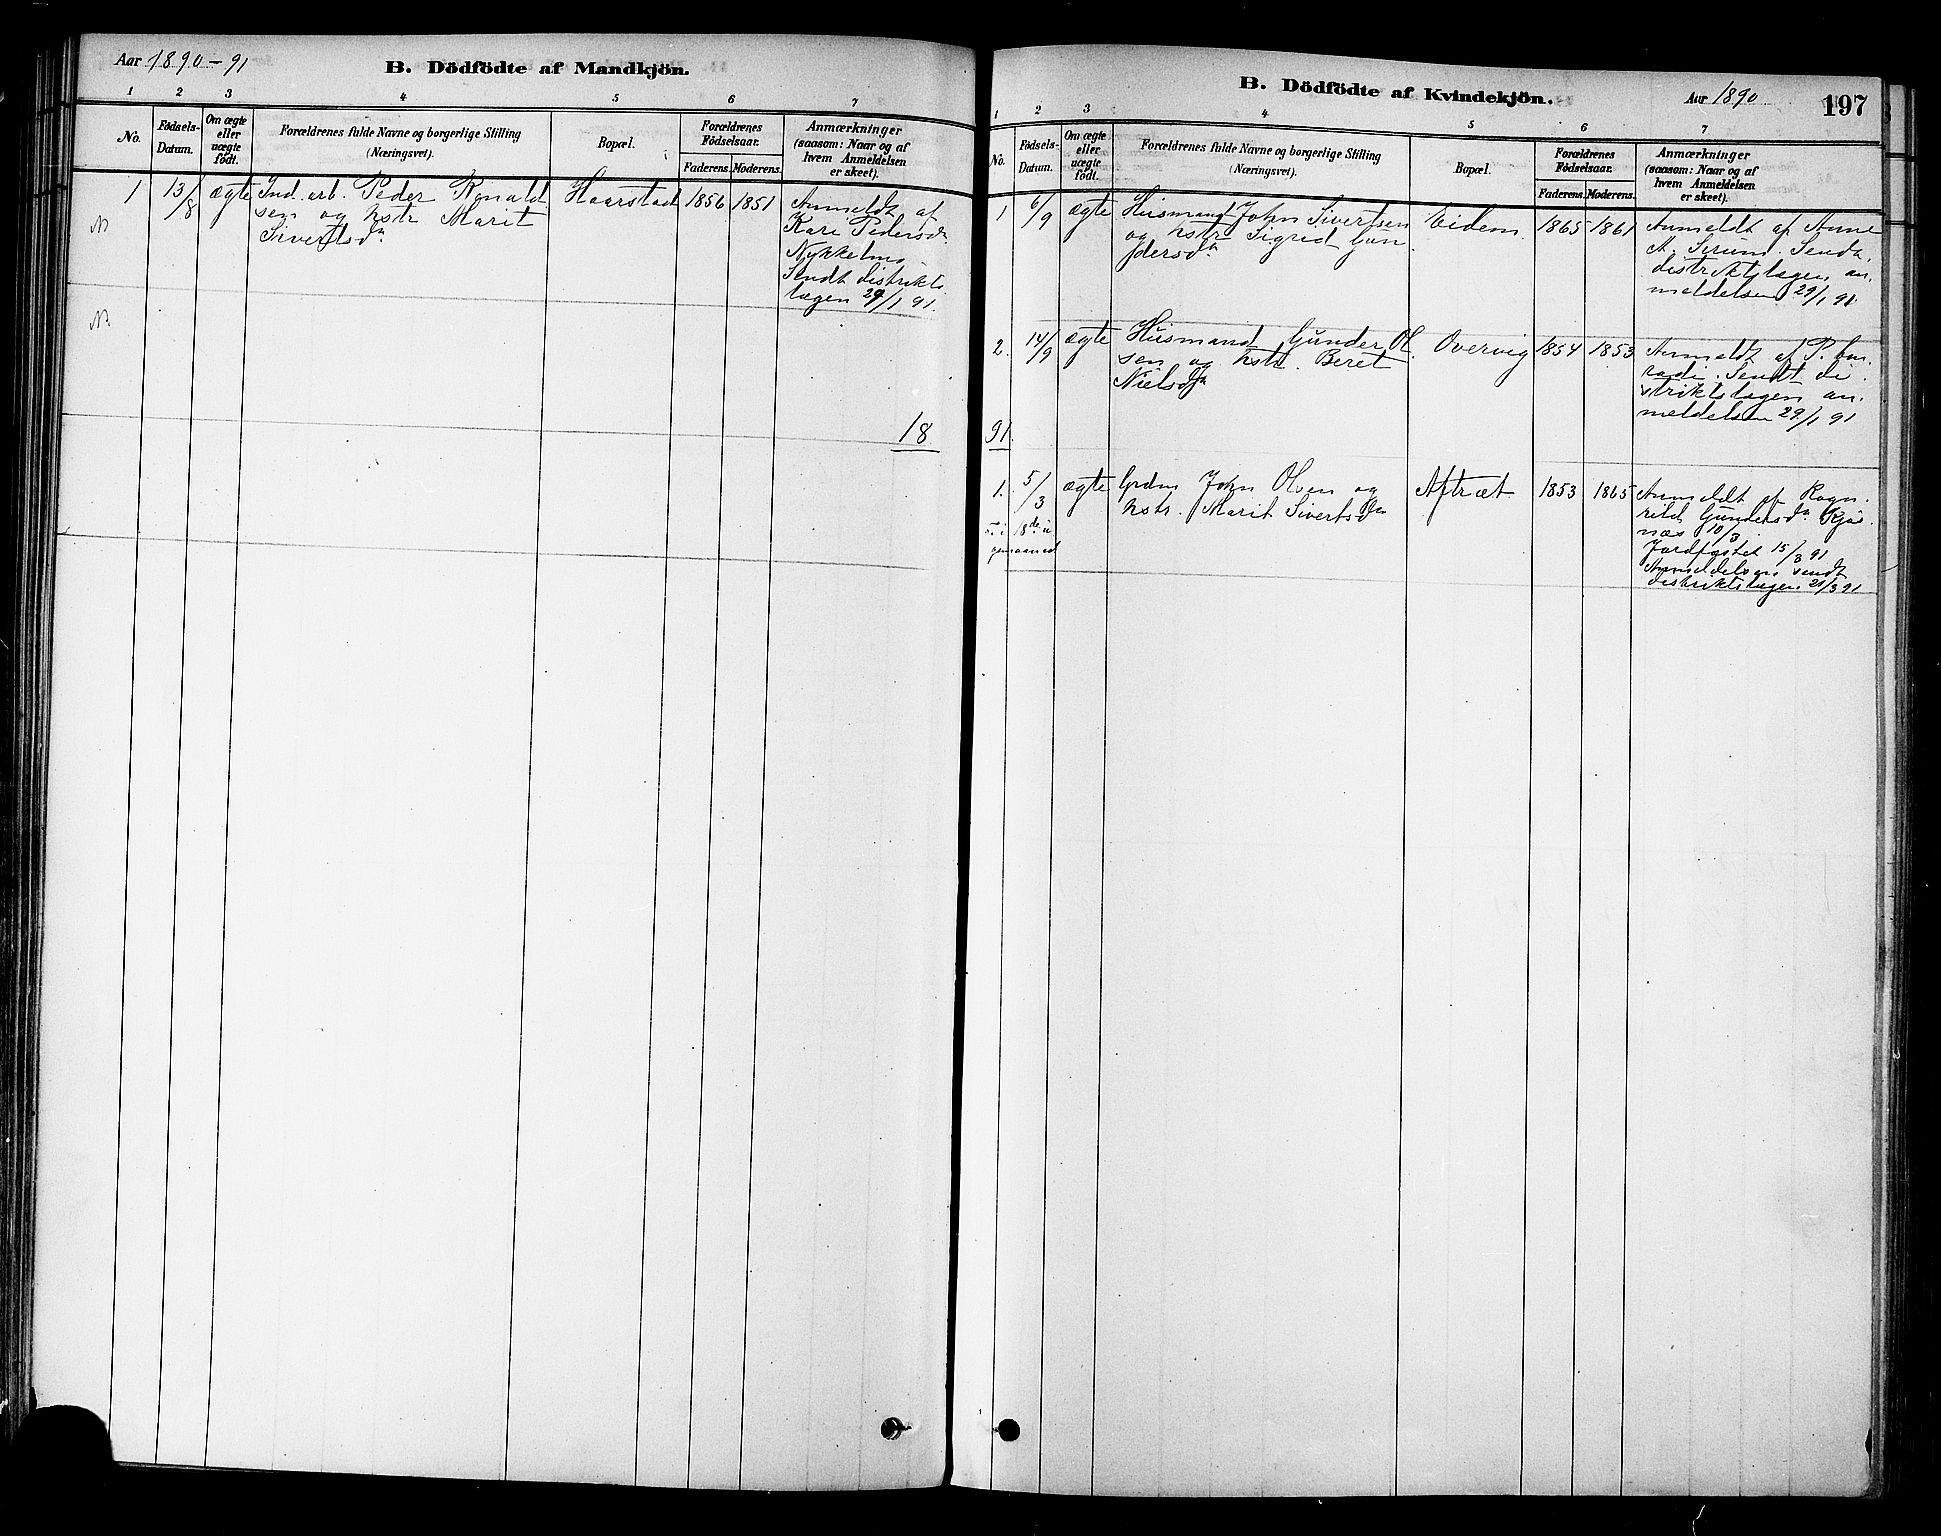 Aar 1890-91
B. Dödfödte af Mandkjön.
1 2 3 4 5 6 7
No.
Födsels-
Datum.
Om ægte
eller
uægte
födt.
Forældrenes fulde Navne og borgerlige Stilling
(Næringsvei).
Bopæl.
Forældrenes
Födselsaar.
Faderens. Moderens.
Anmærkninger
(saasom: Naar og af
hvem Anmeldelsen
er skeet).
1 13/8 ægte Ind. arb. Peder
sen og hstr Marit
Sivertsda
Haarstad 1856 1851
Anmeldt af
Kari Pedersda
Sendt distrikts
lægen 29/1 91.
N
N.
18
B. Dödfödte af Kvindekjön.
Aar 1890
197
1 2 3 4 5 6 7
No.
Födsels-
Datum.
Om ægte
eller
uægte
födt.
Forældrenes fulde Navne og borgerlige Stilling
(Næringsvei).
Bopæl.
Forældrenes
Födselsaar.
Faderens. Moderens.
Anmærkninger
(saasom: Naar og af
hvem Anmeldelsen
er skeet).
1 6/9 ægte Husmand John Sivertsen
og hstr Sigrid Gun
dersda
Eidem 1865 1861
Anmeldt af Anne
A. Sendt
distriktslægen an
meldelsen 29/1 91.
2. 14/9 ægte Husmand Gunder Ol
sen og hstr. Beret
Nielsda
Overvig 1854 1853
Anmeldt af P.
Sendt di
striktslægen an.
meldelsen 29/1 91
91.
1. 5/3 ægte Grdm John Olsen og
hstr. Marit Sivertsda
Aftræt 1853 1865
Anmeldt af Ragn.
rild Gundersda
næs 10/3.
Jordfæstet 15/3 91
Anmeldelsen sendt
distriktslægen 21/3 91